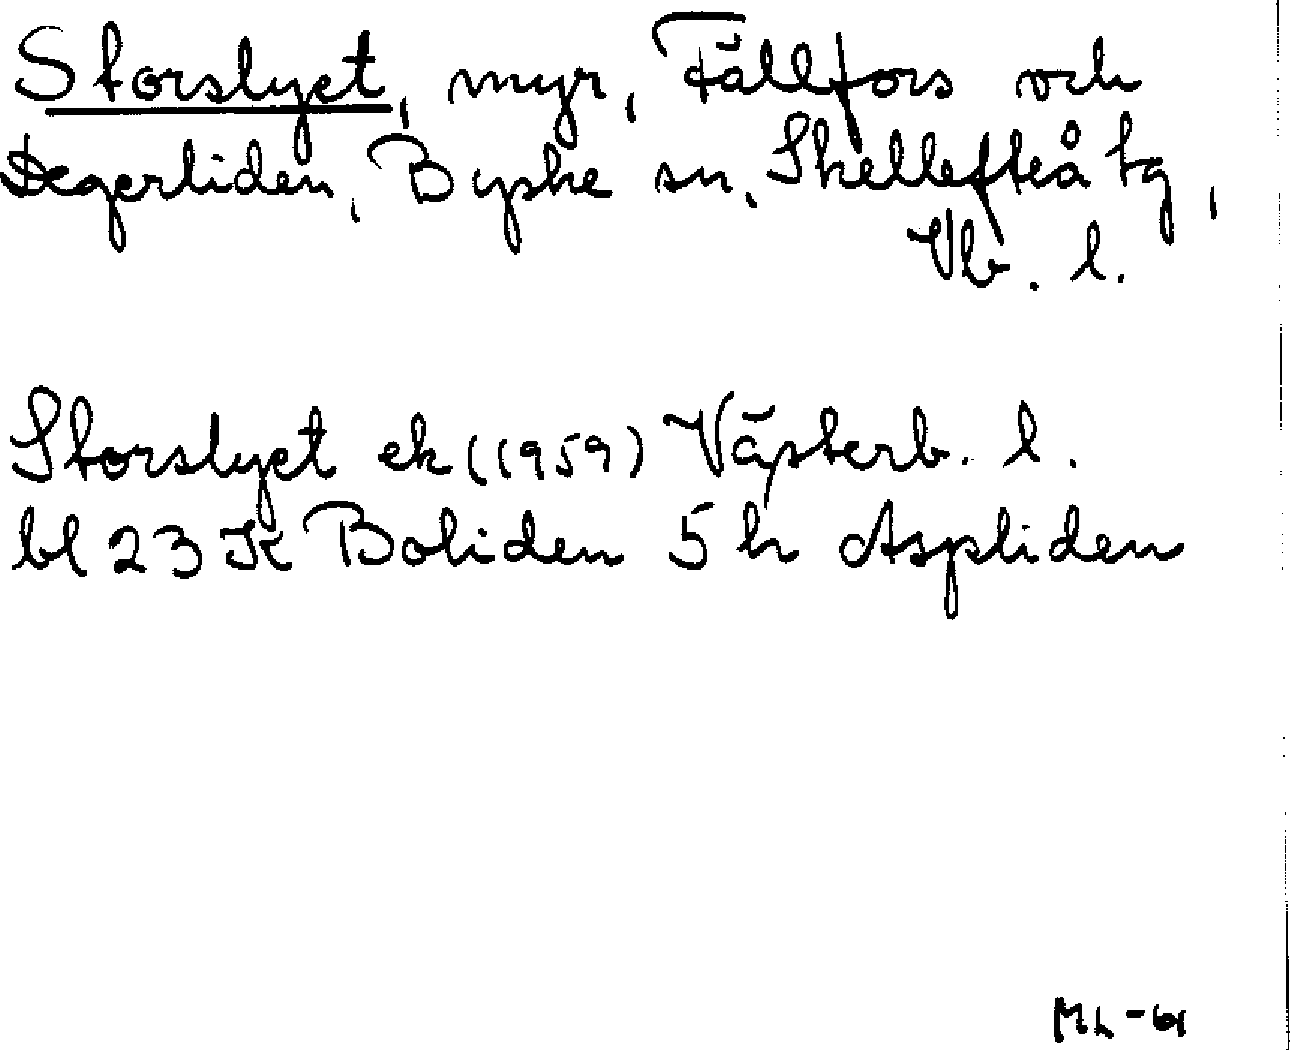 Storslyet, myr, Fällfors och
Degerliden, Byske sn, Skellefteå tg,
Vb. l.
Storslyet ek (1959) Västerb. l.
bl 23 K Boliden 5 h Aspliden
ML-61